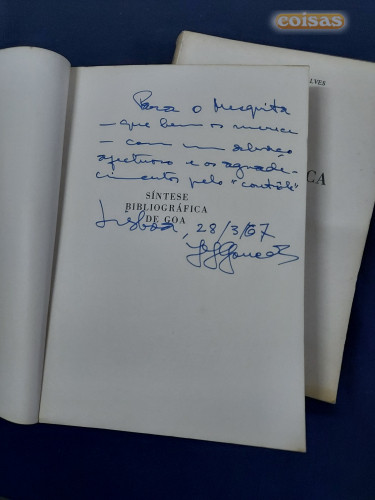 coisas
Para o Mesquita
— que bem os merece
— com um abraço
afetuoso e os agrade-
cimentos pelo "contôlo"
SÍNTESE
BIBLIOGRÁFICA
DE GOA
Lisboa, 28/3/67
LVES
CA